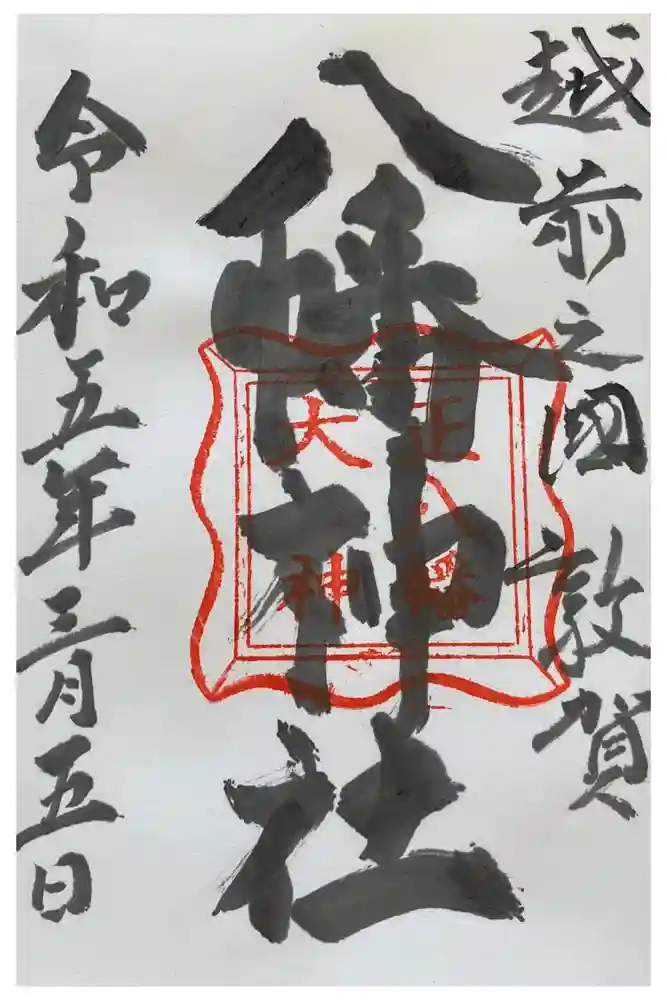 越前之國 敦賀
八幡神社
正八幡
大神
令和五年三月五日